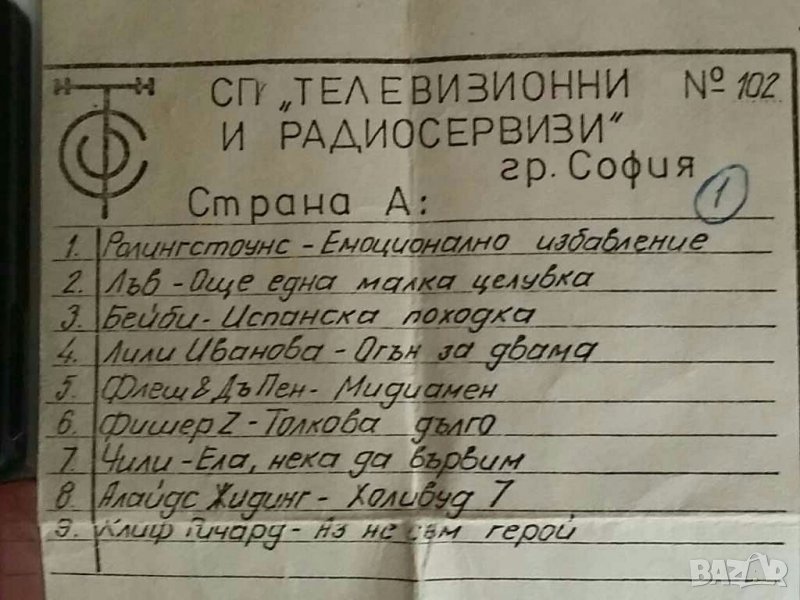 СП „ТЕЛЕВИЗИОННИ № 102
И РАДИОСЕРВИЗИ"
гр. София
Страна А: 1
1. Ролингстоунс - Емоционално избавление
2. Лъв - Още една малка целувка
3. Бейби - Испанска походка
4. Лили Иванова - Огън за двама
5. Флеш & Дъ Пен - Мидиамен
6. Фишер Z - Толкова дълго
7. Чили - Ела, нека да вървим
8. Алайдс Хидинг - Холивуд 7
9. Клиф Ричард - Аз не съм герой
BAZAR